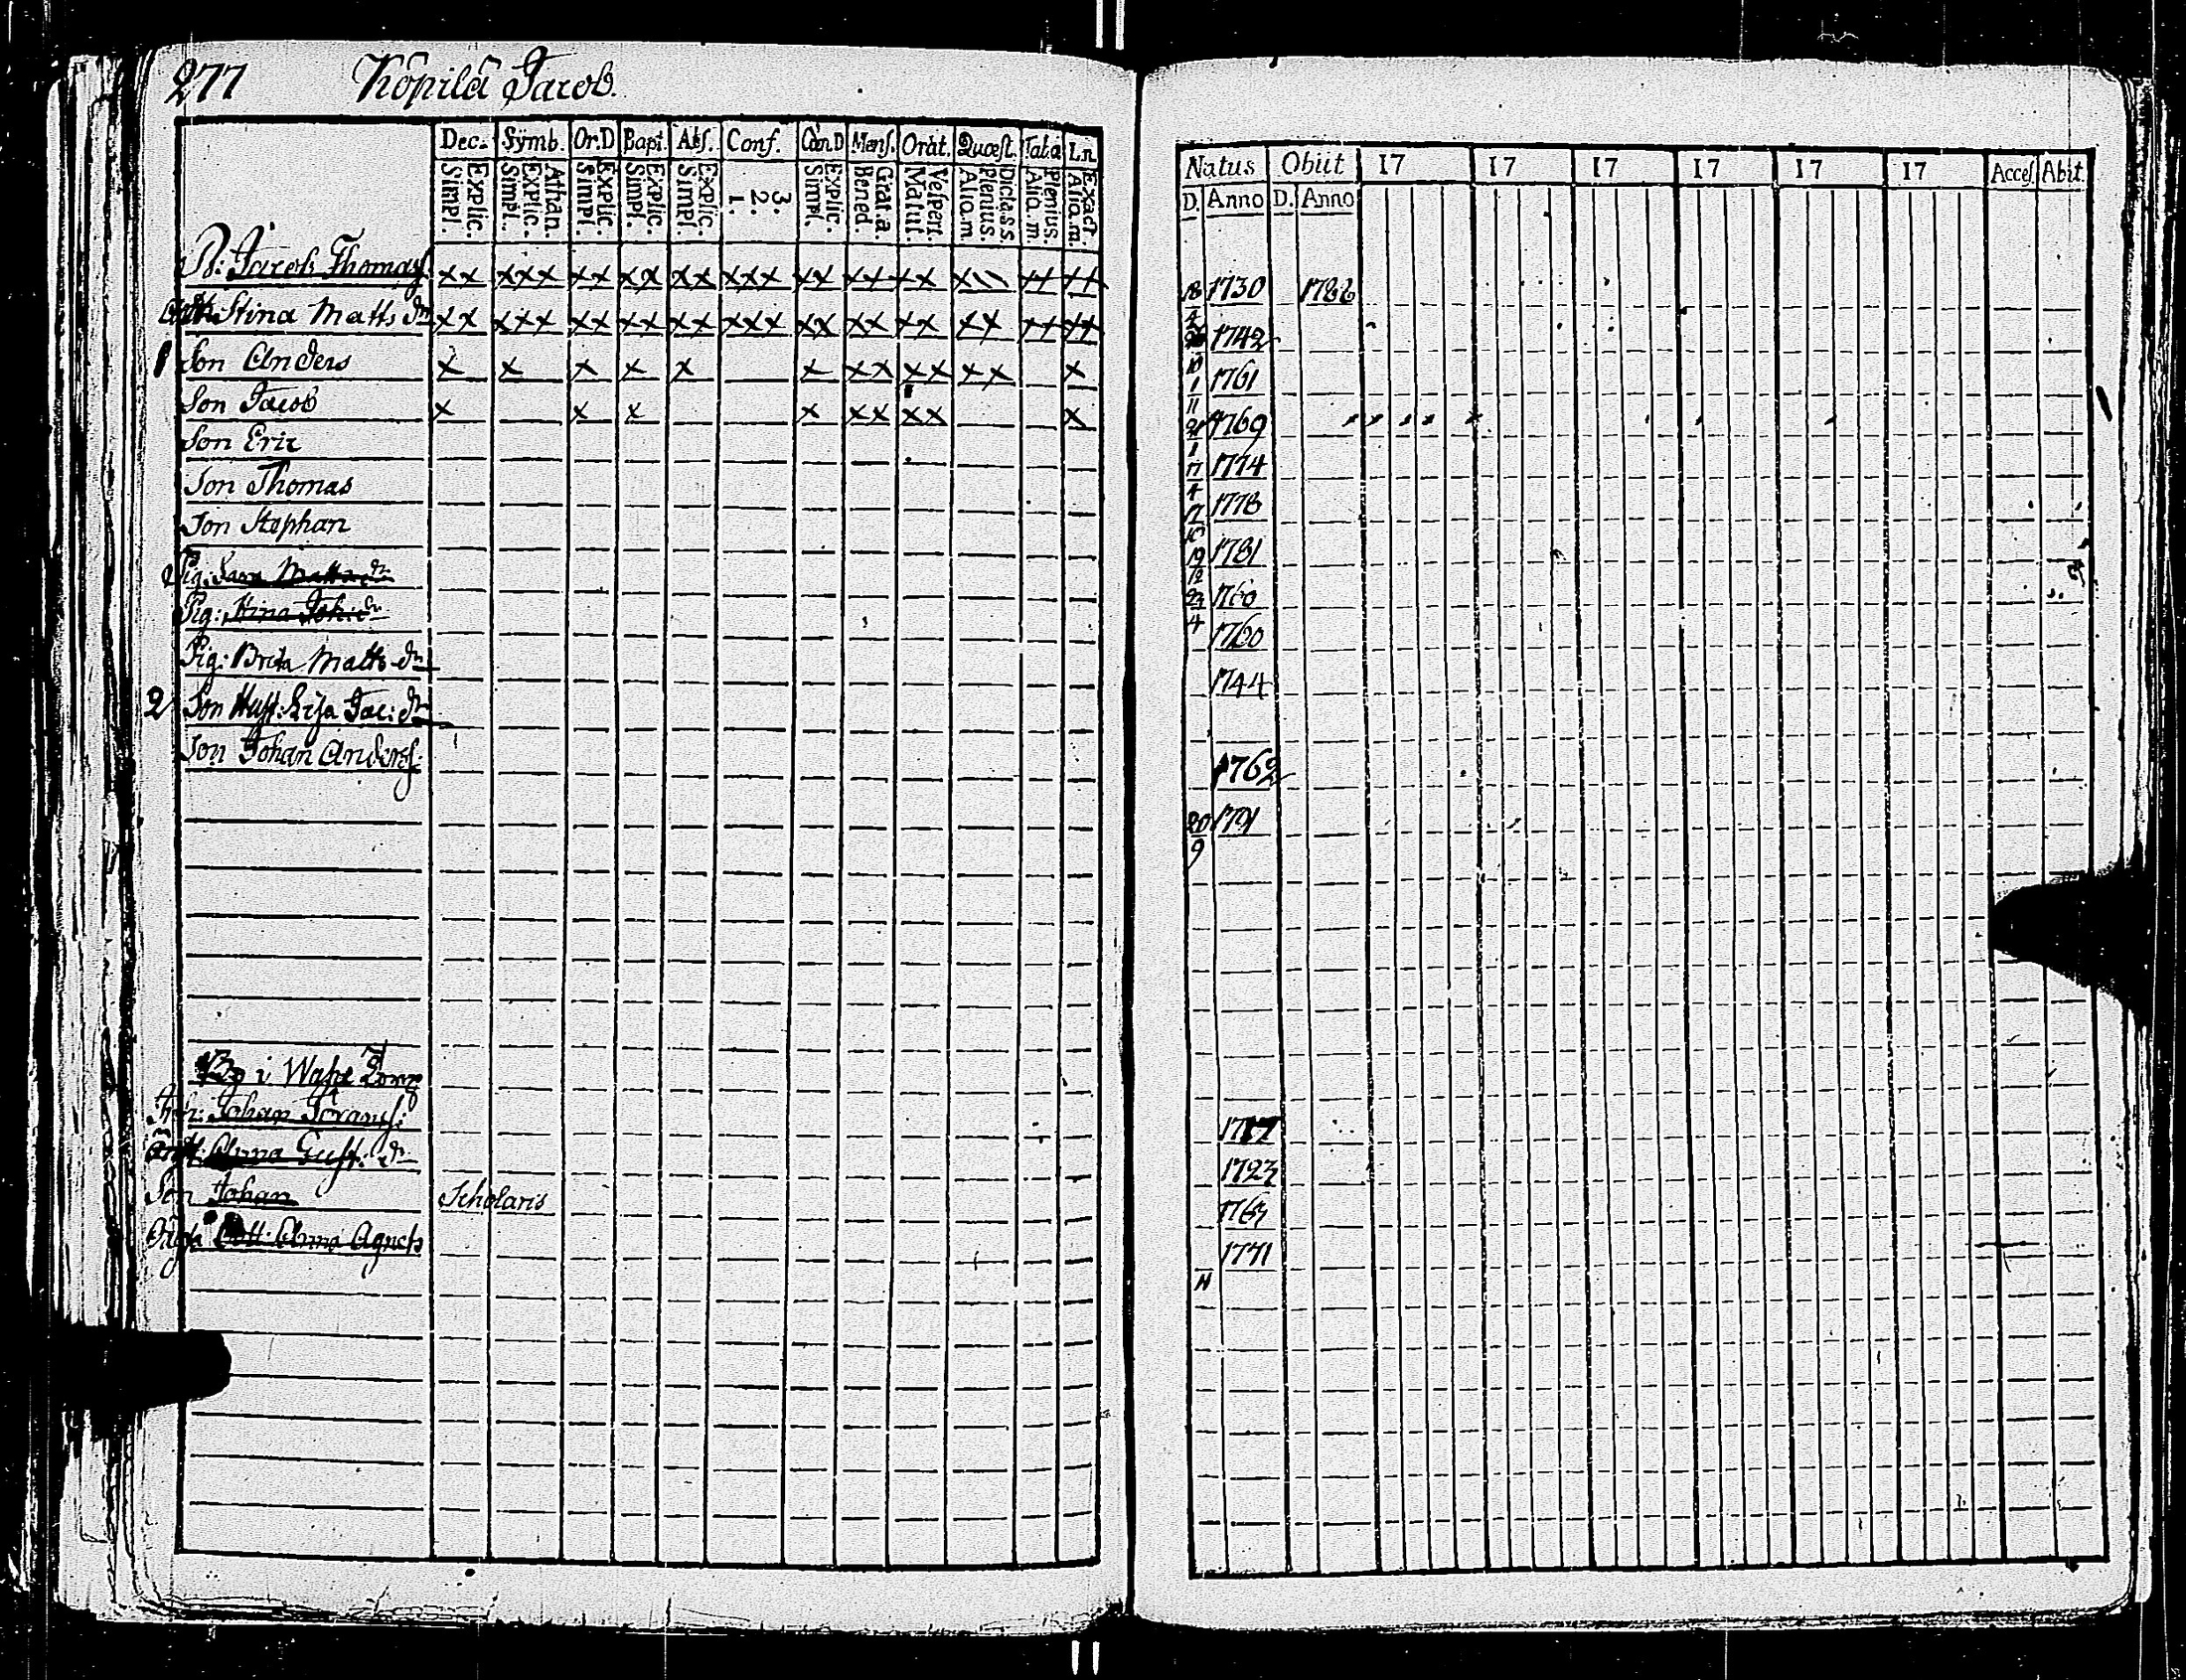 277 Köpilä Jacob.
Dec. Symb. Or.D Bapt. Abs. Conf. Cœn.D Mens. Orat. Quæst. Tab.a Ln
Simpl. Explic. Simpl. Explic. Athan. Simpl. Explic. Simpl. Explic. Simpl. Explic. 1. 2. 3. Simpl. Explic. Bened. Grat.a. Matut. Vespert. Aliq.m Plenius. Dicta.s.s. Aliq.m. Plenius. Aliq.m. Exact.
Natus Obiit 17 17 17 17 17 17 Acces. Abit.
D. Anno D. Anno
B: Jacob Thomas xx xxx xx xx xx xxx xx xx xx x
18 4 1730 1788
Stina Matts dr xx xxx xx xx xx xxx xx xx xx xx
1742
1 Son Anders x x x x x x xx xx xx x
10 1 1761
Son Jacob x x x x xx xx x
11 1769
Son Eric
1 1774
Son Thomas
17 4 1778
Son Staphan
17 10 1781
Pig: Sara Matts dr
19 12 1760
Pig: Stina Joh: dr
23 4 1760
Pig: Brita Matts dr
1744
2 Son Hust: Lisa Jac: dr
1762
Son Johan Anders:
20 9 1791
i Wähä
Johan
17
Anna Gust: dr
1723
Son Johan Scholaris
176
Dott: Anna Agneta
1771
11